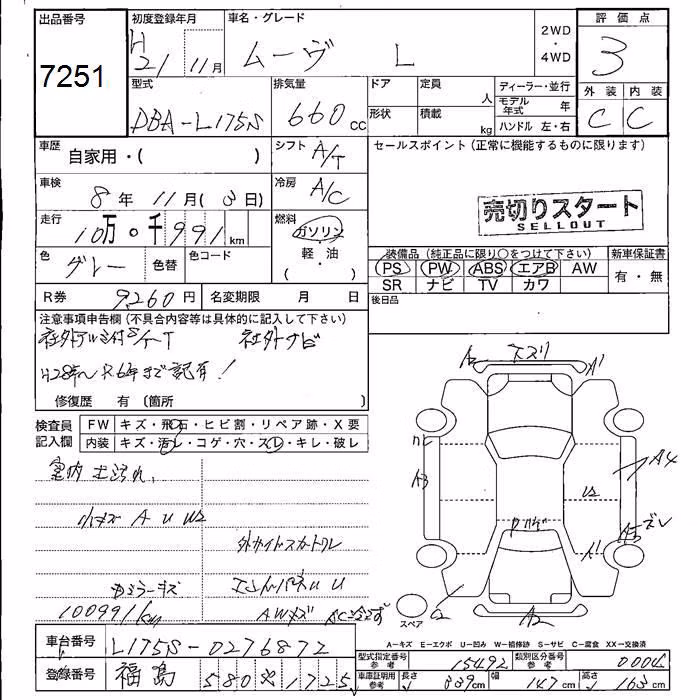 出品番号
7251
初度登録年月
H
21 11月
車名・グレード
ムーヴ L
2WD
・
4WD
評価点
3
型式
DBA-L175S
排気量
660cc
ドア
定員
人
形状
積載
kg
ディーラー・並行
モデル年式 年
ハンドル 左・右
外装 内装
C C
車歴
自家用・( )
シフト
A/T
セールスポイント(正常に機能するものに限ります)
車検
8年 11月(3日)
冷房
A/C
売切りスタート
SELLOUT
走行
10万 0千991km
燃料
ガソリン
・
軽・油
( )
色
グレー
色替
色コード
装備品(純正品に限り○をつけて下さい)
PS PW ABS エアB AW
SR ナビ TV カワ
新車保証書
有・無
R券 9,260円
名変期限 月 日
後日品
注意事項申告欄(不具合内容等は具体的に記入して下さい)
社外アルミ付S/T
社外ナビ
H28年〜R6年まで記有!
修復歴 有(箇所 )
検査員記入欄
FW キズ・飛石・ヒビ割・リペア跡・X要
内装 キズ・汚レ・コゲ・穴・スレ・キレ・破レ
室内 土汚れ
小キズ A U W2
外サイドスカートワレ
ミラーキズ
エンドパネル U
100991km
AWキズ
A2 スリ A1
A3
A4
U2
A3 ズレ
A1
C2
A2
スペア
A－キズ E－エクボ U－凹み W－補修跡 S－サビ C－腐食 XX－交換済
車台番号
L175S-0276872
登録番号
福島 580 ※1725
型式指定番号
参考
15492
類別区分番号
参考
0004
車庫証明用
参考
長さ 339cm 幅 147cm 高さ 163cm